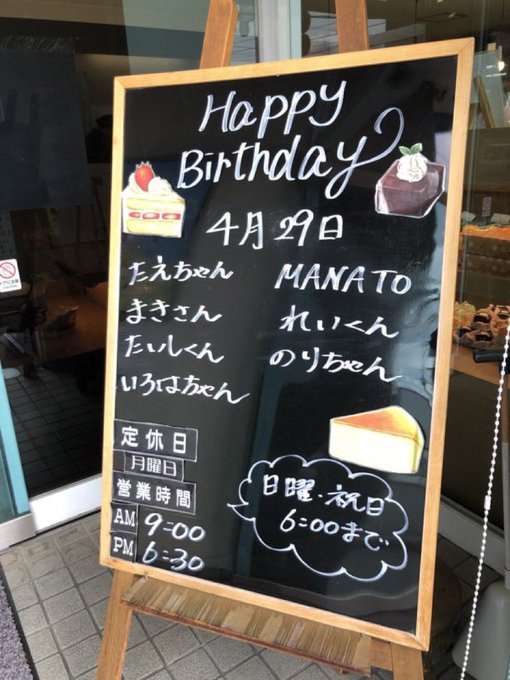 Happy
Birthday
4月29日
たえちゃん
まきさん
たいしくん
いろはちゃん
MANATO
れいくん
のりちゃん
定休日
月曜日
営業時間
AM 9:00
PM 6:30
日曜・祝日
6:00まで